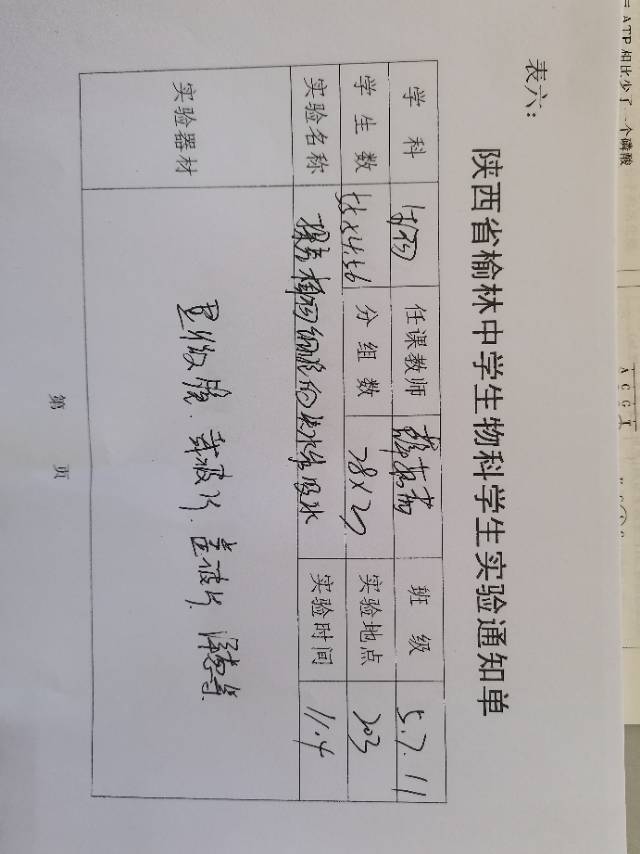 = ATP 相比少了一个磷酸
A C G T
表六：
陕西省榆林中学生物科学生实验通知单
学科 生物 任课教师 班级 5.7.11
学生数 分组数 28×2 实验地点 203
实验名称 探究植物细胞的失水与吸水 实验时间 11.4
实验器材 显微镜、载玻片、盖玻片、
第 页